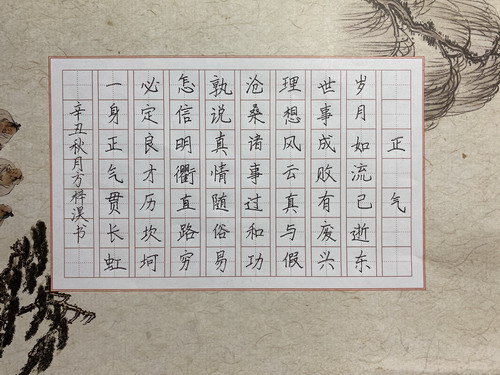 正气
岁月如流已逝东
世事成败有废兴
理想风云真与假
沧桑诸事过和功
孰说真情随俗易
怎信明衢直路穷
必定良才历坎坷
一身正气贯长虹
辛丑秋月方书